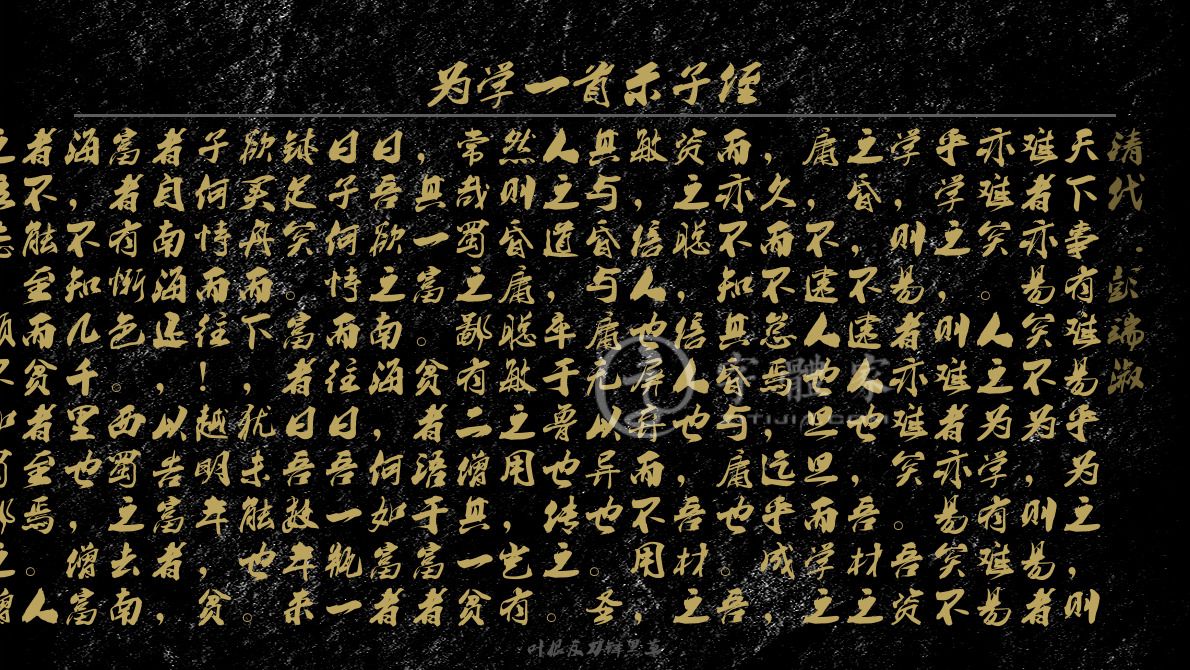 为学一首示子侄
清代．彭端淑
天下事有难易乎为之，则
难者亦易矣不为，则易者
亦难矣。人之为学有难易
乎学之，则难者亦易矣不
学，则易者亦难矣。吾资
之昏，不逮人也，吾材之
庸，不逮人也旦旦而学之
，久而不怠焉，迄乎成，
而亦不知其昏与庸也。吾
资之聪倍人也，吾材之
敏，倍人也屏弃而不用，
其与昏与庸无以异也。圣
人之道，卒于鲁也传之。
然则昏庸聪敏之用，岂有
常哉蜀之鄙有二僧其一贫
，其一富。贫者语于富者
曰吾欲之南海，何如富者
曰子何恃而往曰吾一瓶一
钵足矣。富者曰吾数年来
欲买舟而下，犹未能也。
子何恃而往！越明年，贫
者自南海还，以告富者，
富者有惭色。西蜀之去南
海，不知几千里也，僧富
者不能至而贫者至焉。人
志顾不如蜀鄙之僧
字體家